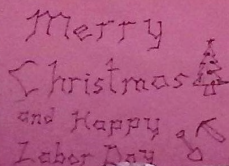 Merry
Christmas
and Happy
Labor Day